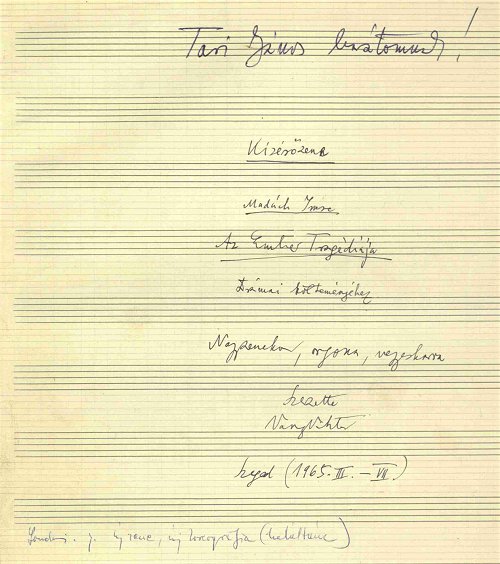 Tari János barátomnak!
Kísérőzene
Madách Imre
Az Ember Tragédiája
Drámai költeményéhez
Nagyzenekar, orgona, vegyeskarra
szerzette
Vaszy Viktor
Szeged (1965. III. – VII.)
új zene, új koreográfia (haláltánc)